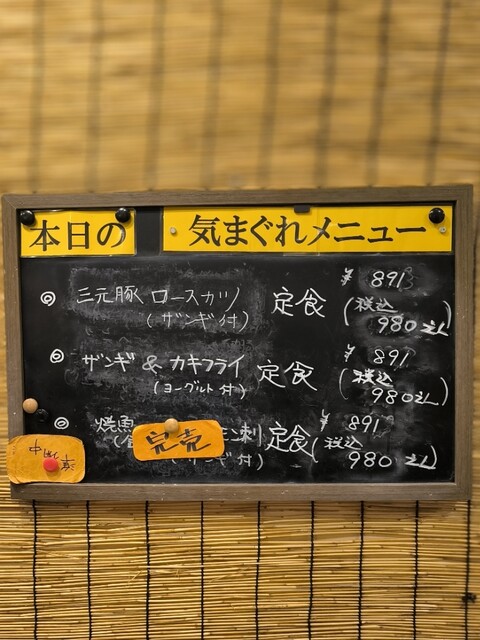 本日の 気まぐれメニュー
◎ 三元豚 ロースカツ 定食 ¥891
(ザンギ付) (税込 980え)
◎ ザンギ & カキフライ 定食 ¥891
(ヨーグルト付) (税込 980え)
◎ 焼魚 刺 定食 ¥891
付) (税込 980え)
完売